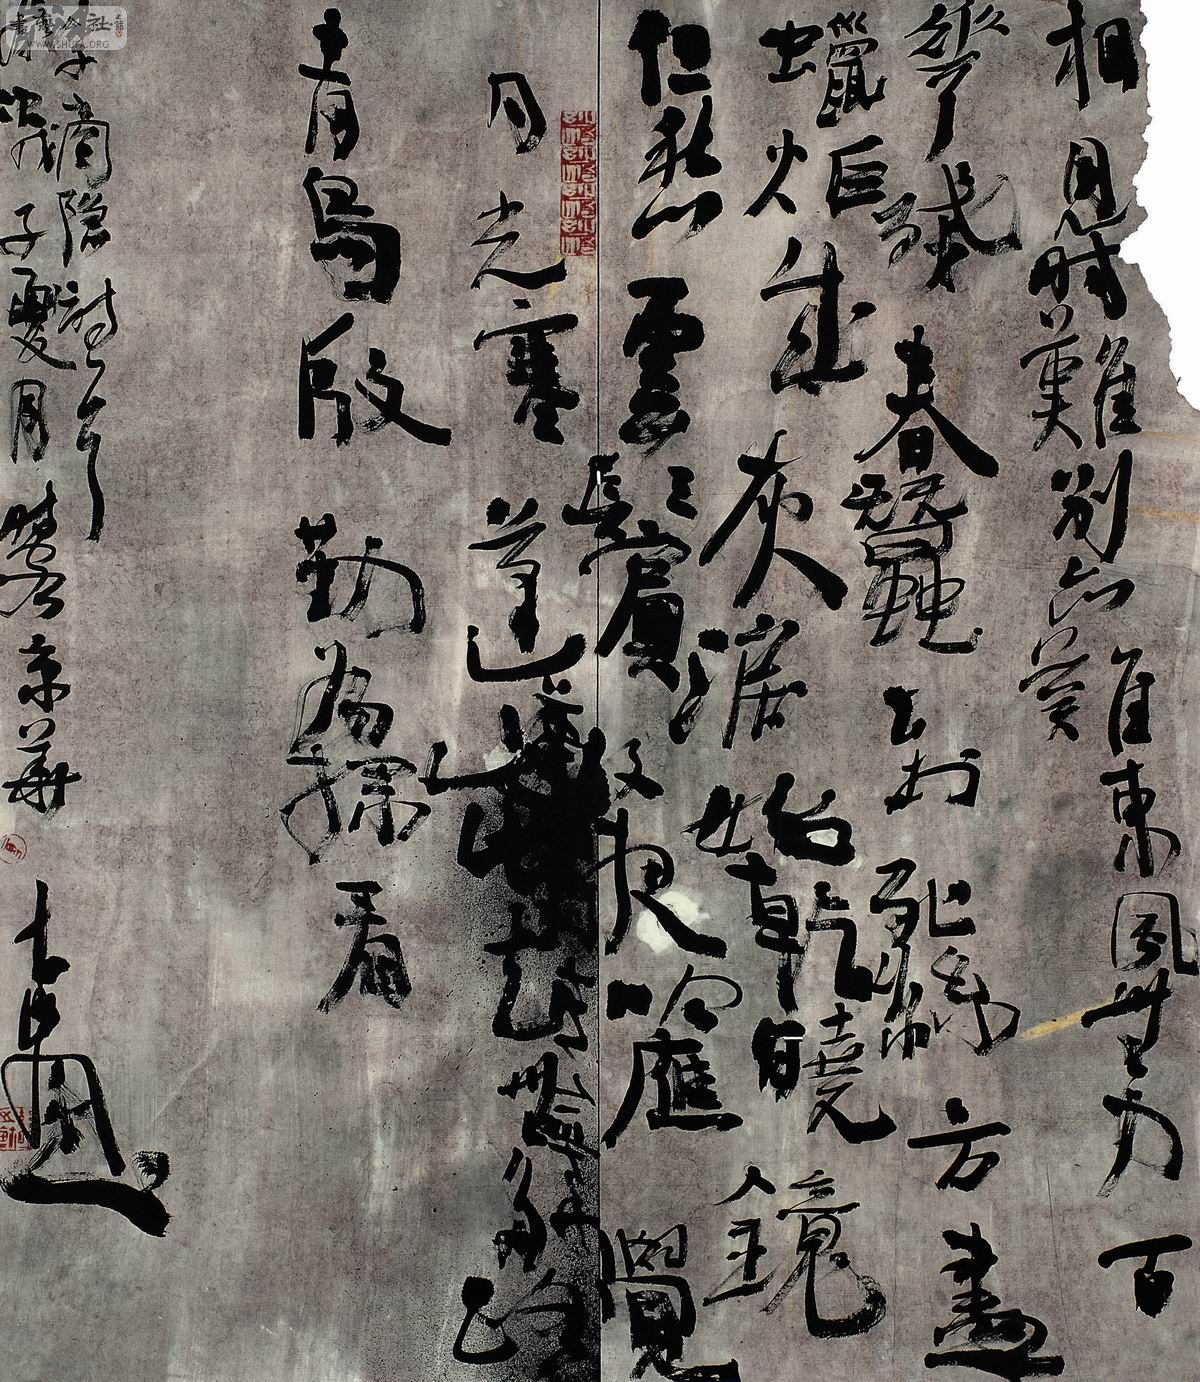 相見時難別亦難東風無力百
花殘春蠶到死絲方盡
蠟炬成灰淚始乾曉鏡
但愁雲鬢改夜吟應覺
月光寒蓬山此去無多路
青鳥殷勤為探看
李商隱詩一首
歲次戊子夏月京華
書藝公社
WWW.SHUFA.ORG